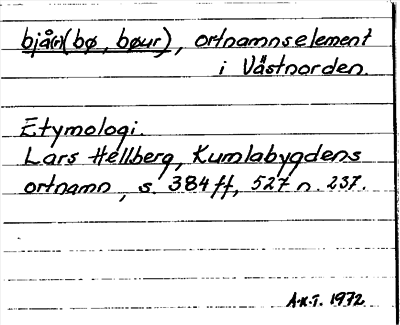 bjå(r)(bø, bøur), ortnamnselement
i Västnorden.
Etymologi.
Lars Hellberg, Kumlabygdens
ortnamn, s. 384 ff, 527 n. 237.
A-K.T. 1972